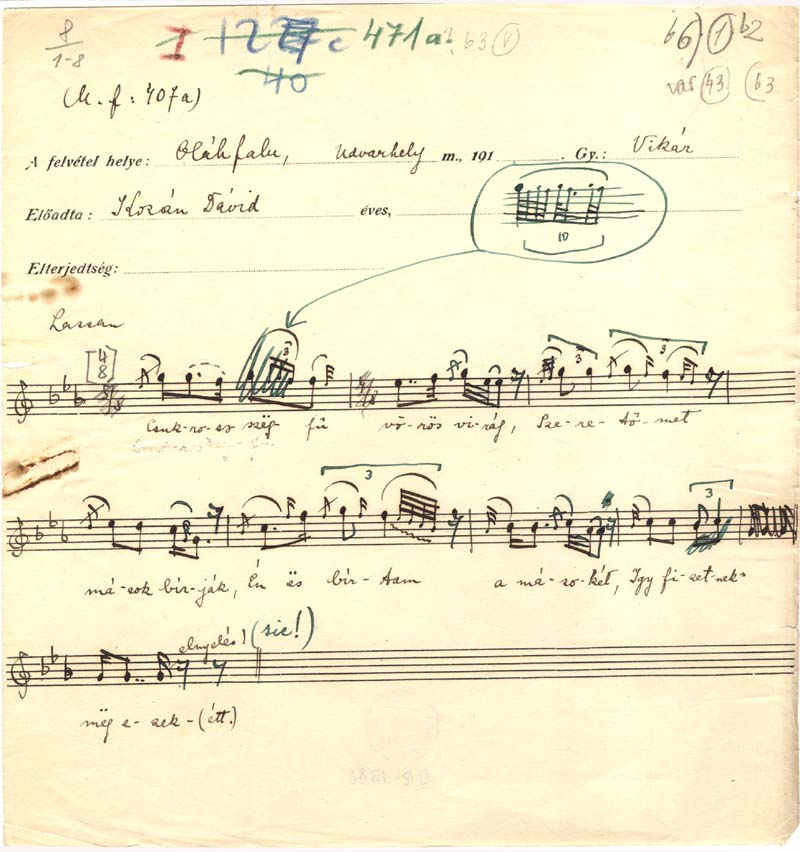 8
1-8
I 122 c 471a? b3 V
40
b6) 1 b2
var 43 (b3
(M. f: 407a)
A felvétel helye: Oláhfalu, Udvarhely m., 191 . Gy.: Vikár
Előadta: Kozán Dávid éves,
10
Elterjedtség:
Lassan
[4/8]
3 3 3
Csuk-ro-so szëg- fű vö-rös vi-rág, Sze-re-tő-met
3 3
má-sok bír-ják, Én ës bír-tam a má-so-két, Igy fi-zet-nek
elnyelés! (sic!)
mëg e-zek-(étt.)